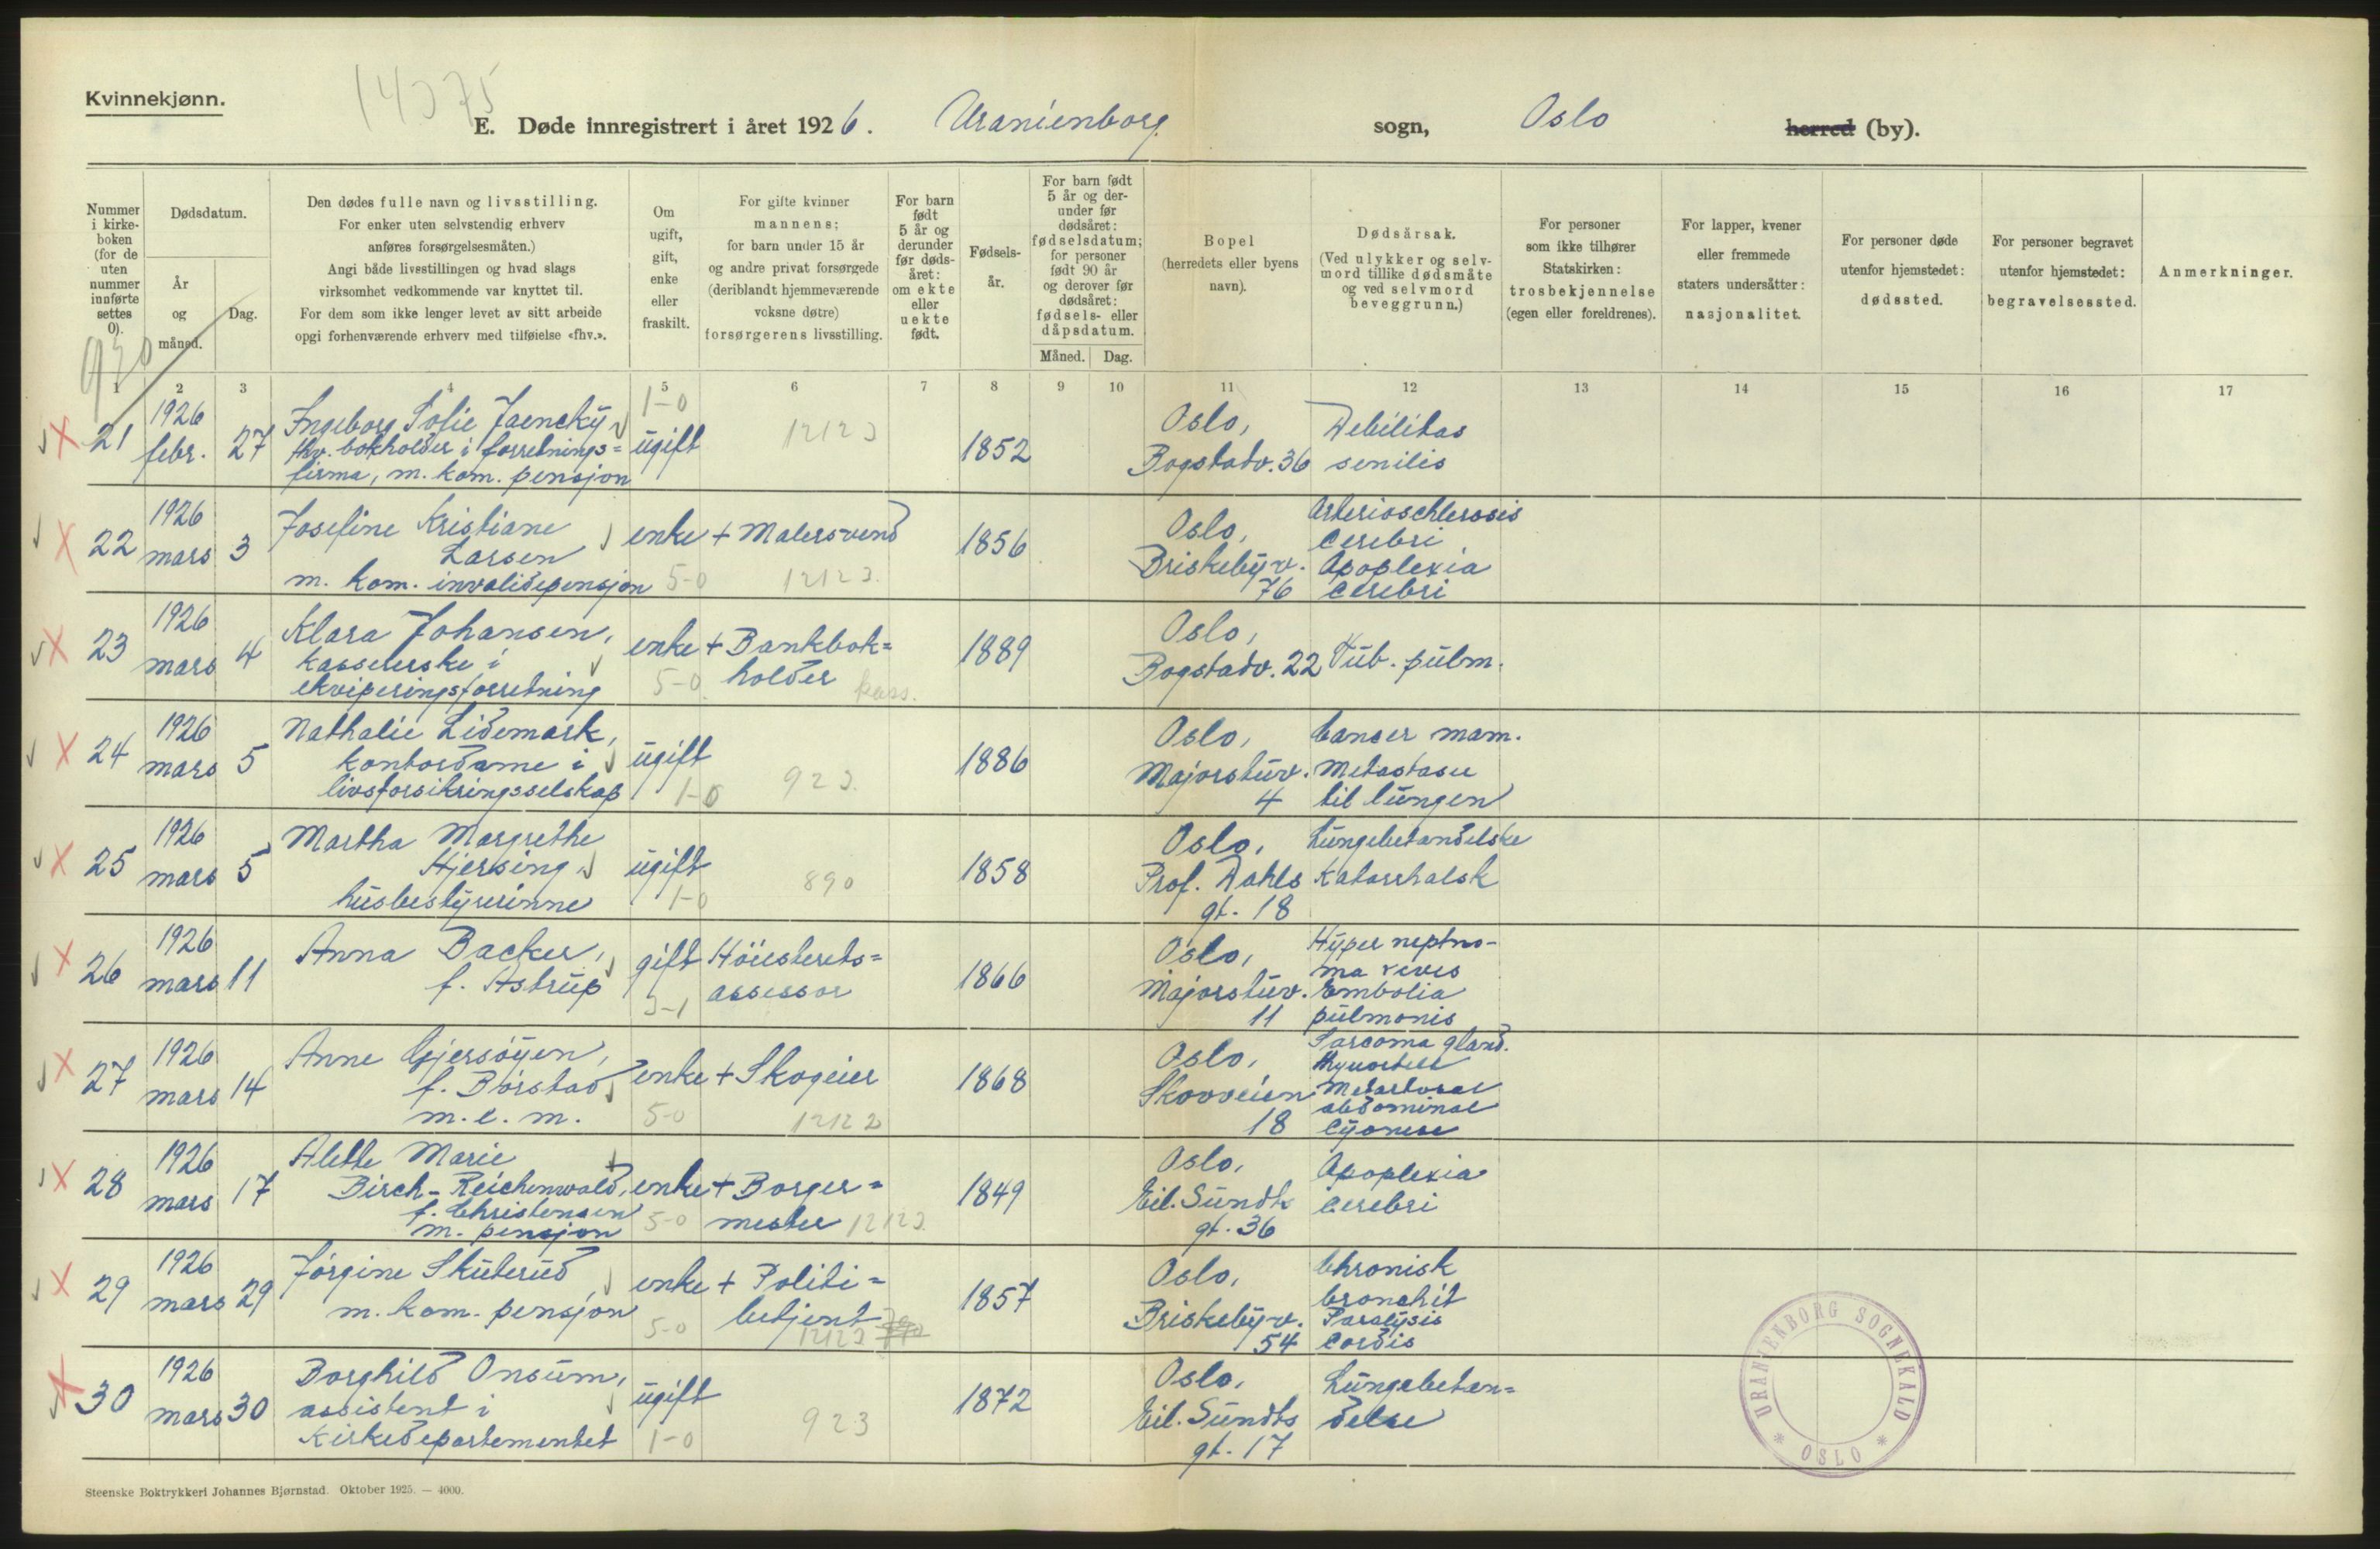 Kvinnekjønn.
E. Døde innregistrert i året 1926. Uranienborg sogn, Oslo herred (by).
Nummer i kirke-boken (for de uten nummer innførte settes 0).
Dødsdatum.
År og måned.
Dag.
Den dødes fulle navn og livsstilling.
For enker uten selvstendig erhverv
anføres forsørgelsesmåten.)
Angi både livsstillingen og hvad slags
virksomhet vedkommende var knyttet til.
For dem som ikke lenger levet av sitt arbeide
opgi forhenværende erhverv med tilføielse «fhv.».
Om ugift, gift, enke eller fraskilt.
For gifte kvinner
mannens;
for barn under 15 år
og andre privat forsørgede
(deriblandt hjemmeværende
voksne døtre)
forsørgerens livsstilling.
For barn født 5 år og derunder før døds-året: om ekte eller uekte født.
Fødsels-år.
For barn født 5 år og der-under før dødsåret: fødselsdatum; for personer født 90 år og derover før dødsåret: fødsels- eller dåpsdatum.
Måned. Dag.
Bopel
(herredets eller byens
navn).
Dødsårsak.
(Ved ulykker og selv-
mord tillike dødsmåte
og ved selvmord
beveggrunn.)
For personer
som ikke tilhører
Statskirken:
trosbekjennelse
(egen eller foreldrenes).
For lapper, kvener
eller fremmede
staters undersåtter:
nasjonalitet.
For personer døde
utenfor hjemstedet:
dødssted.
For personer begravet
utenfor hjemstedet:
begravelsessted.
Anmerkninger.
1 2 3 4 5 6 7 8 9 10 11 12 13 14 15 16 17
21 1926 febr. 27
Ingeborg Sofie Jaencky
fhv. bokholder i forretnings=
firma, m. kom. pensjon
ugift 1-0
1852
Oslo,
Bogstadv. 36
Debilitas
senilis
22 1926 mars 3
Josefine Kristiane
Larsen
m. kom. invalidepensjon
enke 5-0
+ Malersvend
1856
Oslo,
Briskebyv.
76
Arterioschlerosis
cerebri
Apoplexia
cerebri
23 1926 mars 4
Klara Johansen,
kassererske i
ekviperingsforretning
enke 5-0
+ Bankbok=
holder
1889
Oslo,
Bogstadv. 22
Tub. pulm.
24 1926 mars 5
Nathalie Lidemark,
kontordame i
livsforsikringsselskap
ugift 1-0
1886
Oslo,
Majorstuv.
4
Cancer mam.
Metastaser
til lungen
25 1926 mars 5
Martha Margrethe
Hjersing
husbestyrerinne
ugift 1-0
890
1858
Oslo,
Prof. Dahls
gt. 18
Lungebetændelske
Katarrhalsk
26 1926 mars 11
Anna Backer,
f. Astrup
gift
Höiesterets=
assessor
1866
Oslo,
Majorstuv.
11
Hyper nephro-
ma
Embolia
pulmonis
27 1926 mars 14
Anne Gjersöyen,
f. Börstad
m. e. m.
enke 5-0
+ Skogeier
1868
Oslo,
Skovveien
18
Sarcoma gland.
abdominal
28 1926 mars 17
Alette Marie
Birch-Reichenwald,
f. Christensen
m. pensjon
enke 5-0
+ Borger=
mester
1849
Oslo,
Eil. Sundts
gt. 36
Apoplexia
cerebri
29 1926 mars 29
Jörgine Skuterud
m. kom. pensjon
enke 5-0
+ Politi=
betjent
1857
Oslo,
Briskebyv.
54
Chronisk
bronchit
Paralysis
cordis
30 1926 mars 30
Borghild Onsum,
assistent i
Kirkedepartementet
ugift 1-0
923
1872
Oslo,
Eil. Sundts
gt. 17
Lungebetæn=
delse
URANIENBORG SOGNEKALD * OSLO *
Steenske Boktrykkeri Johannes Bjørnstad. Oktober 1925. — 4000.